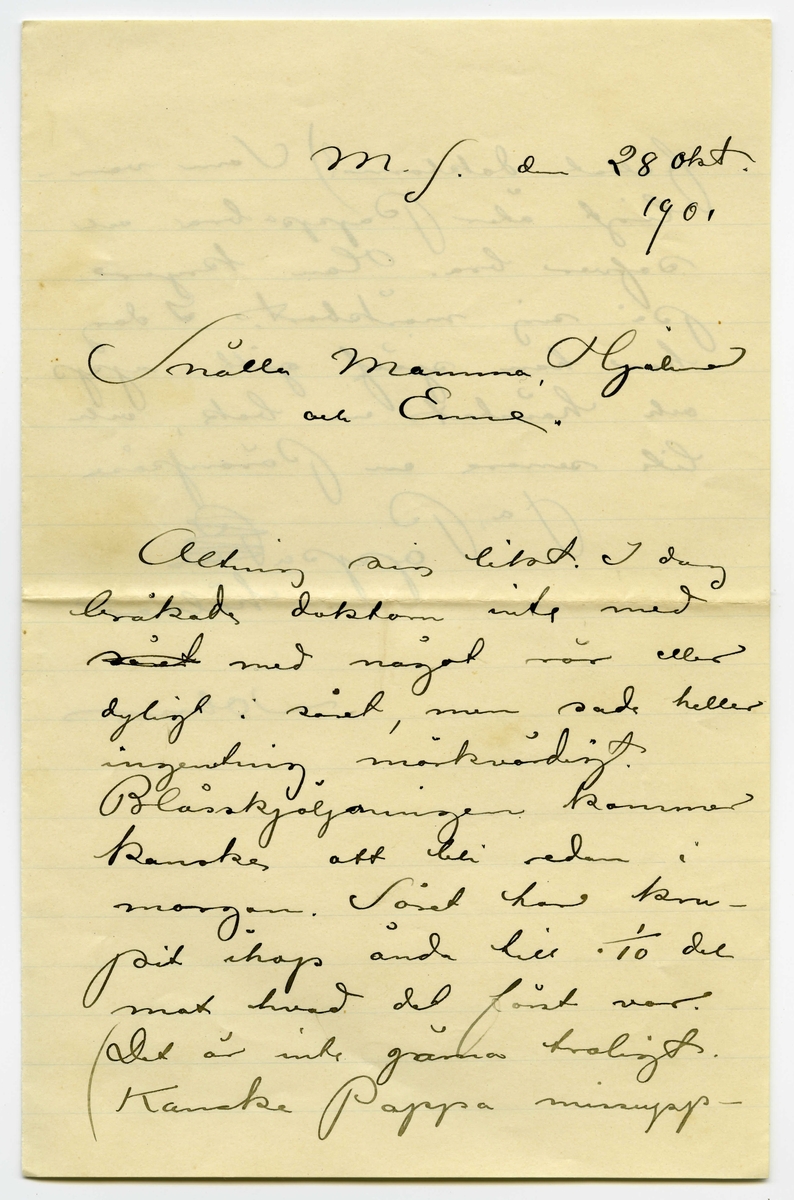 M. S. den 28 Okt.
1901
Snälla Mamma, Hjalmar
och Emme.
Allting sig likt. I dag
bråkade doktorn inte med
såret med något rör eller
dyligt i såret, men sade heller
ingenting märkvärdigt.
Blåsskjöljningen kommer
kanske att bli redan i
morgon. Såret har kru-
pit ihop ända till 1/10 del
mot hvad det först var.
(Det är inte gärna troligt.
Kanske Pappa missupp-